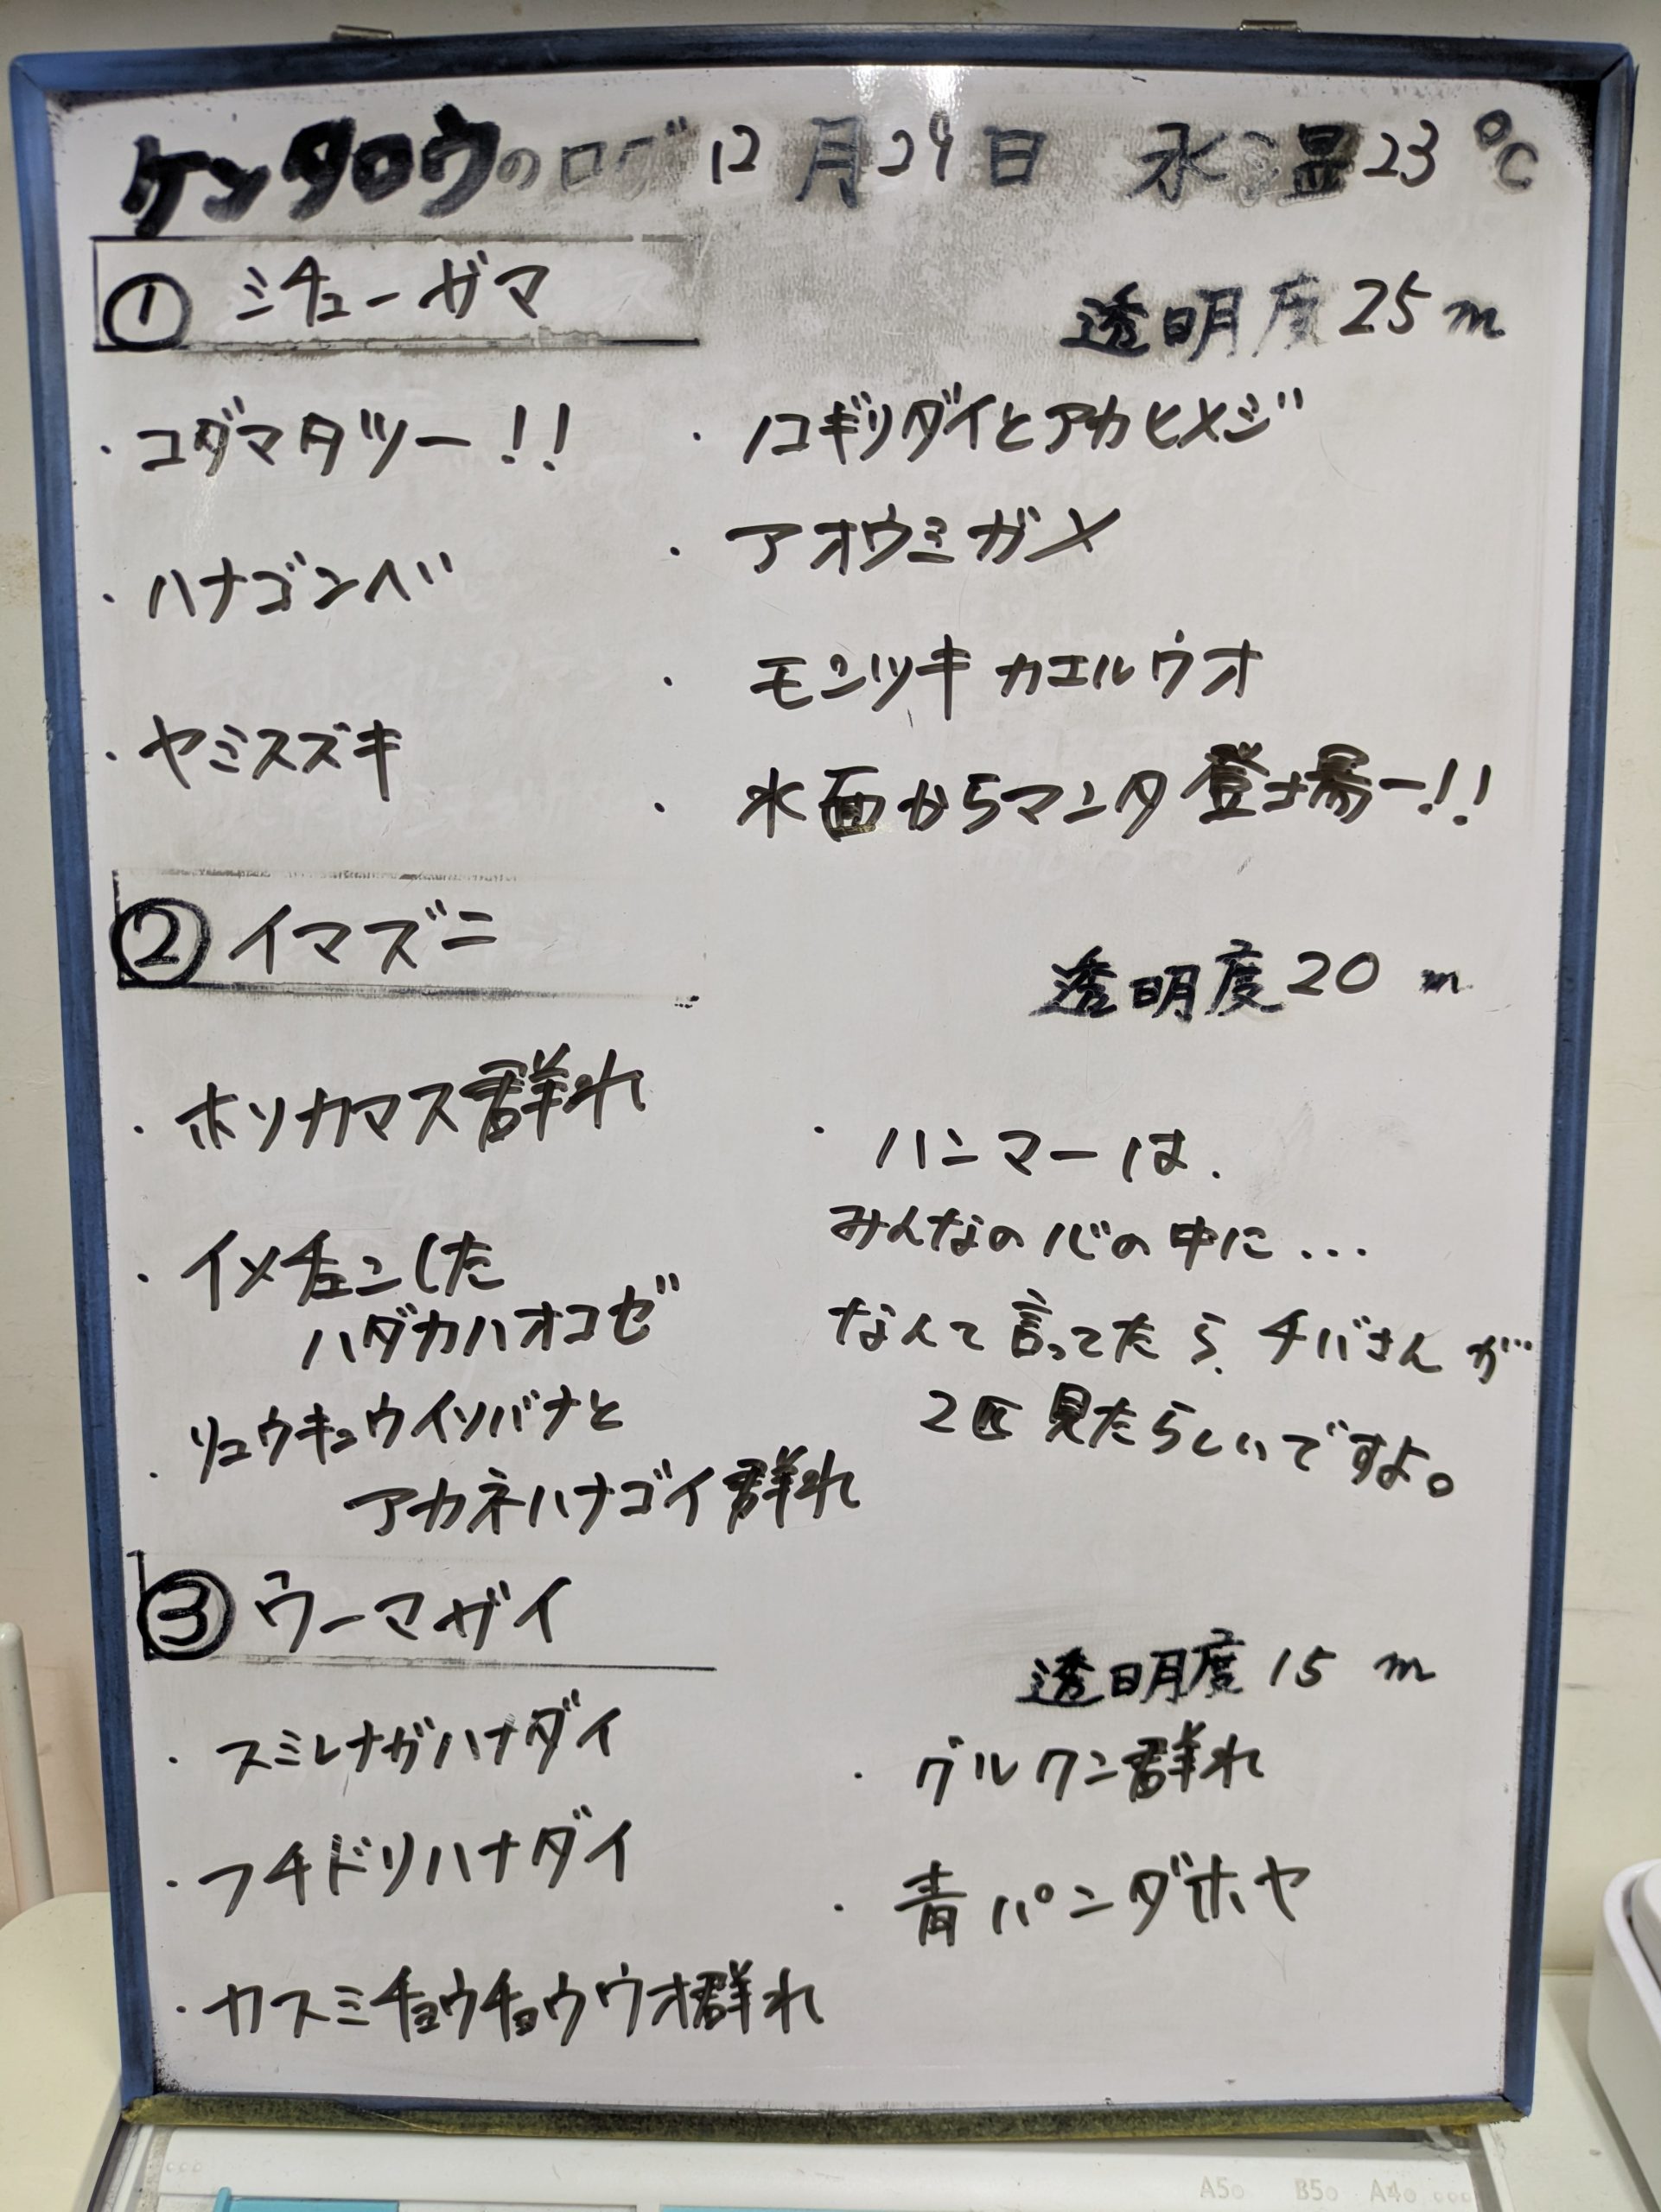 ケンタロウのログ 12月29日 水温23℃
① ミチューガマ
透明度25m
・コダマタツー!!
・ハナゴンベ
・ヤミスズキ
・ノコギリダイとアカヒメジ
・アオウミガメ
・モンツキカエルウオ
・水面からマンタ登場ー!!
② イマズニ
透明度20m
・ホソカマス群れ
・イメチェンした
ハダカハオコゼ
・リュウキュウイソバナと
アカネハナゴイ群れ
・ハンマーは、
みんなの心の中に...
なんて言ってたら、チバさんが
2匹見たらしいですよ。
③ ウーマガイ
透明度15m
・スミレナガハナダイ
・フチドリハナダイ
・カスミチョウチョウウオ群れ
・グルクン群れ
・青パンダホヤ
A5 B5 A4